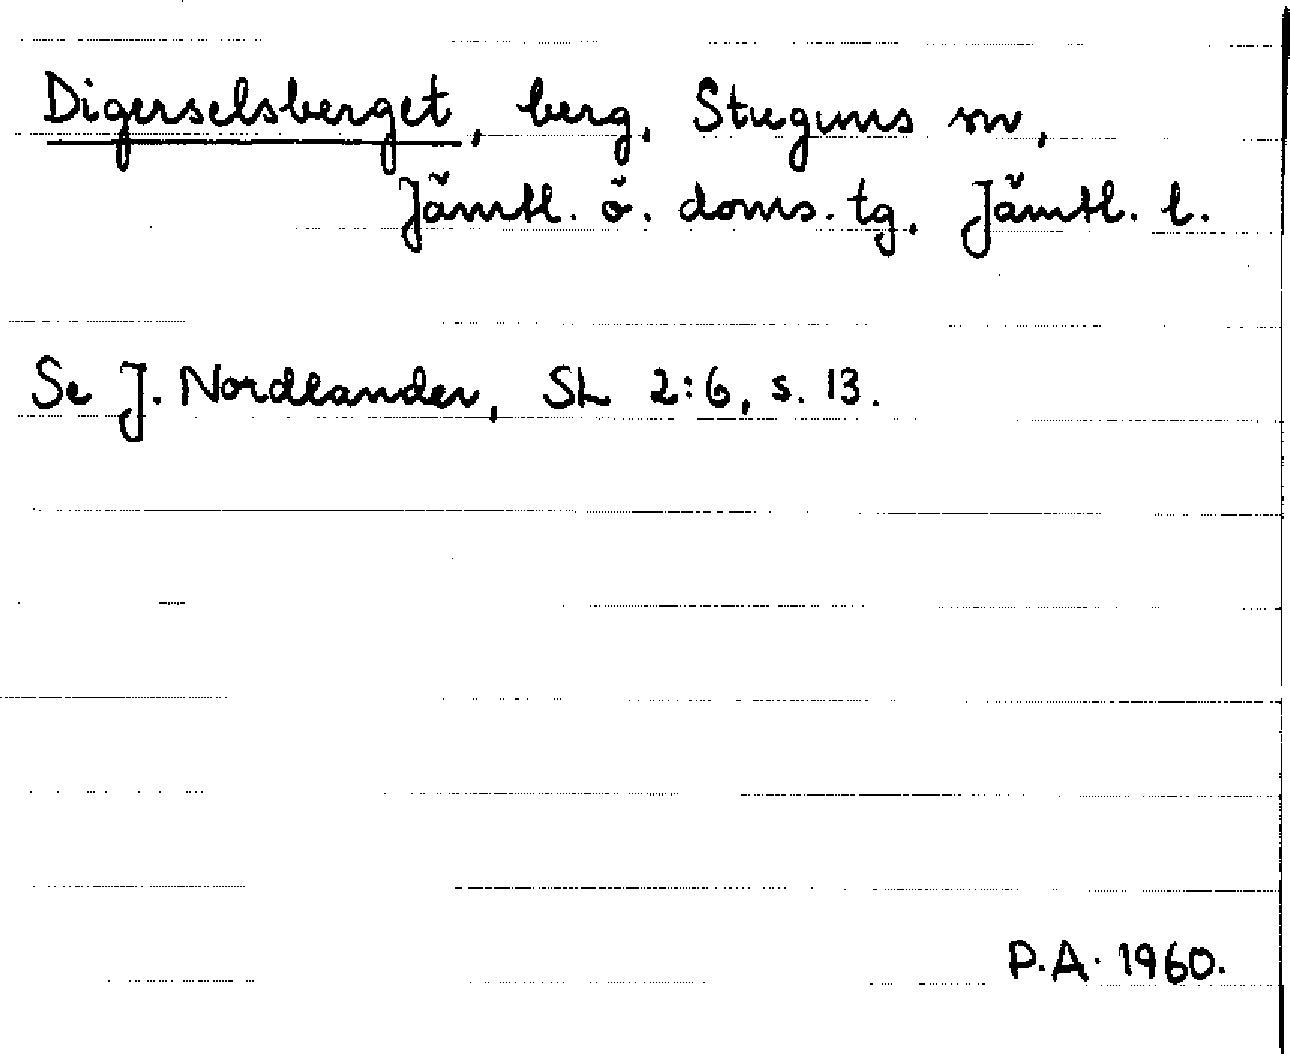 Digerselsberget, berg, Stuguns sn,
Jämtl. ö. doms. tg. Jämtl. l.
Se J. Nordlander, SL 2:6, s. 13.
P.A. 1960.